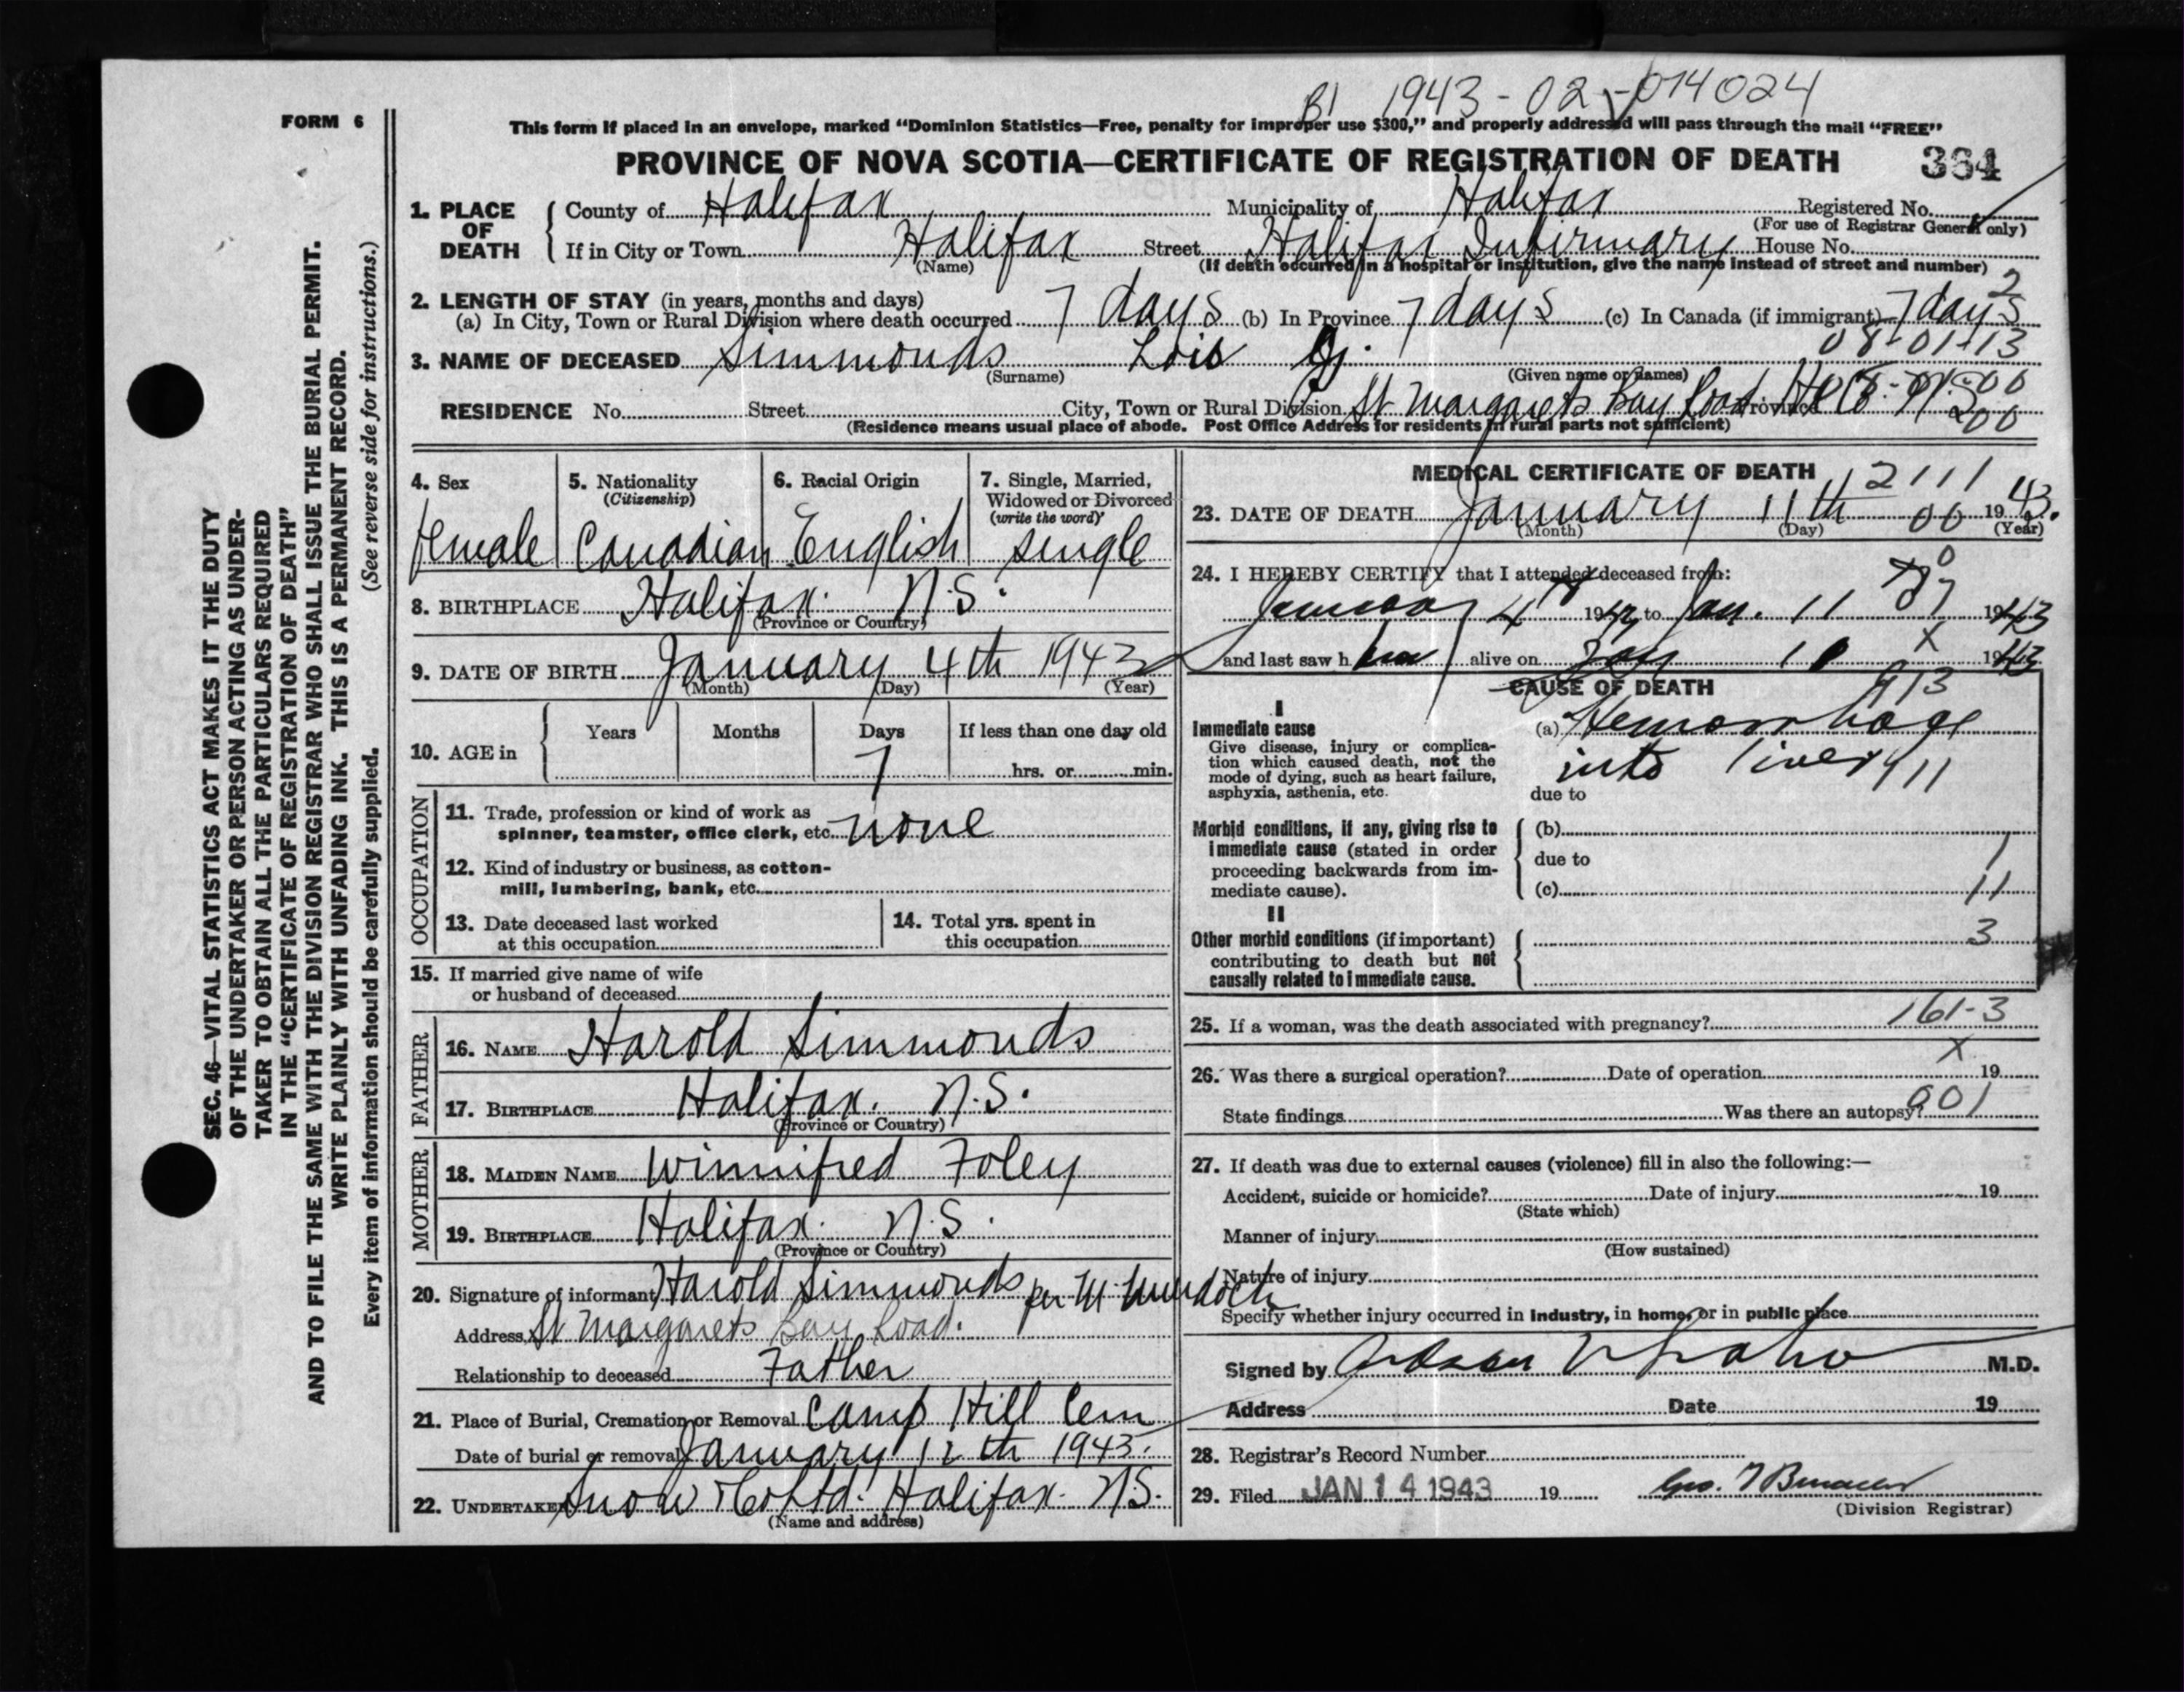 B1 1943-02-014024
FORM 6
This form if placed in an envelope, marked "Dominion Statistics—Free, penalty for improper use $300," and properly addressed will pass through the mail "FREE"
PROVINCE OF NOVA SCOTIA—CERTIFICATE OF REGISTRATION OF DEATH 364
1. PLACE OF DEATH County of Halifax Municipality of Halifax Registered No.
(For use of Registrar General only)
If in City or Town Halifax Street Halifax Infirmary House No.
(Name) (If death occurred in a hospital or institution, give the name instead of street and number)
2. LENGTH OF STAY (in years, months and days) 2
(a) In City, Town or Rural Division where death occurred 7 days (b) In Province 7 days (c) In Canada (if immigrant) 7 days
08-01-13
3. NAME OF DECEASED Simmonds Lois J.
(Surname) (Given name or names)
RESIDENCE No. Street City, Town or Rural Division St Margarets Bay Road Province
(Residence means usual place of abode. Post Office Address for residents in rural parts not sufficient) 00
4. Sex 5. Nationality 6. Racial Origin 7. Single, Married,
(Citizenship) Widowed or Divorced
(write the word)
female Canadian English single
8. BIRTHPLACE Halifax. N.S.
(Province or Country)
9. DATE OF BIRTH January 4th 1943
(Month) (Day) (Year)
10. AGE in Years Months Days If less than one day old
7 hrs. or min.
OCCUPATION
11. Trade, profession or kind of work as
spinner, teamster, office clerk, etc. none
12. Kind of industry or business, as cotton-
mill, lumbering, bank, etc.
13. Date deceased last worked
at this occupation
14. Total yrs. spent in
this occupation
15. If married give name of wife
or husband of deceased
FATHER
16. NAME Harold Simmonds
17. BIRTHPLACE Halifax. N.S.
(Province or Country)
MOTHER
18. MAIDEN NAME Winnifred Foley
19. BIRTHPLACE Halifax. N.S.
(Province or Country)
20. Signature of informant Harold Simmonds per M Murdoch
Address St Margarets Bay Road.
Relationship to deceased Father
21. Place of Burial, Cremation or Removal Camp Hill Cem
Date of burial or removal January 12th 1943.
22. UNDERTAKER Snow & Co Ltd. Halifax. N.S.
(Name and address)
MEDICAL CERTIFICATE OF DEATH
2111
23. DATE OF DEATH January 11th 00 1943.
(Month) (Day) (Year)
24. I HEREBY CERTIFY that I attended deceased from:
January 4 19 to Jan. 11 1943
and last saw h er alive on Jan 10 x 1943
CAUSE OF DEATH 913
I
Immediate cause
Give disease, injury or complica-
tion which caused death, not the
mode of dying, such as heart failure,
asphyxia, asthenia, etc.
(a) Hemorrhage
into liver 911
due to
Morbid conditions, if any, giving rise to
immediate cause (stated in order
proceeding backwards from im-
mediate cause).
(b)
due to 1
(c) 11
II
Other morbid conditions (if important)
contributing to death but not
causally related to immediate cause.
3
25. If a woman, was the death associated with pregnancy? 161-3
x
26. Was there a surgical operation? Date of operation 19
State findings Was there an autopsy? 001
27. If death was due to external causes (violence) fill in also the following:—
Accident, suicide or homicide? Date of injury 19
(State which)
Manner of injury
(How sustained)
Nature of injury
Specify whether injury occurred in industry, in home, or in public place
Signed by M.D.
Address Date 19
28. Registrar's Record Number
29. Filed JAN 14 1943 19 Geo.
(Division Registrar)
SEC. 46—VITAL STATISTICS ACT MAKES IT THE DUTY
OF THE UNDERTAKER OR PERSON ACTING AS UNDER-
TAKER TO OBTAIN ALL THE PARTICULARS REQUIRED
IN THE "CERTIFICATE OF REGISTRATION OF DEATH"
AND TO FILE THE SAME WITH THE DIVISION REGISTRAR WHO SHALL ISSUE THE BURIAL PERMIT.
WRITE PLAINLY WITH UNFADING INK. THIS IS A PERMANENT RECORD.
Every item of information should be carefully supplied. (See reverse side for instructions.)